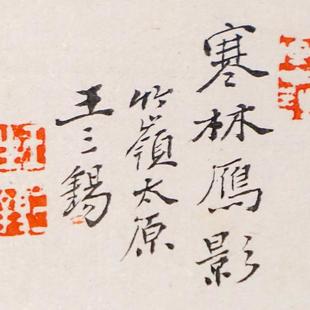 寒林鴈影
竹嶺太原
王三錫